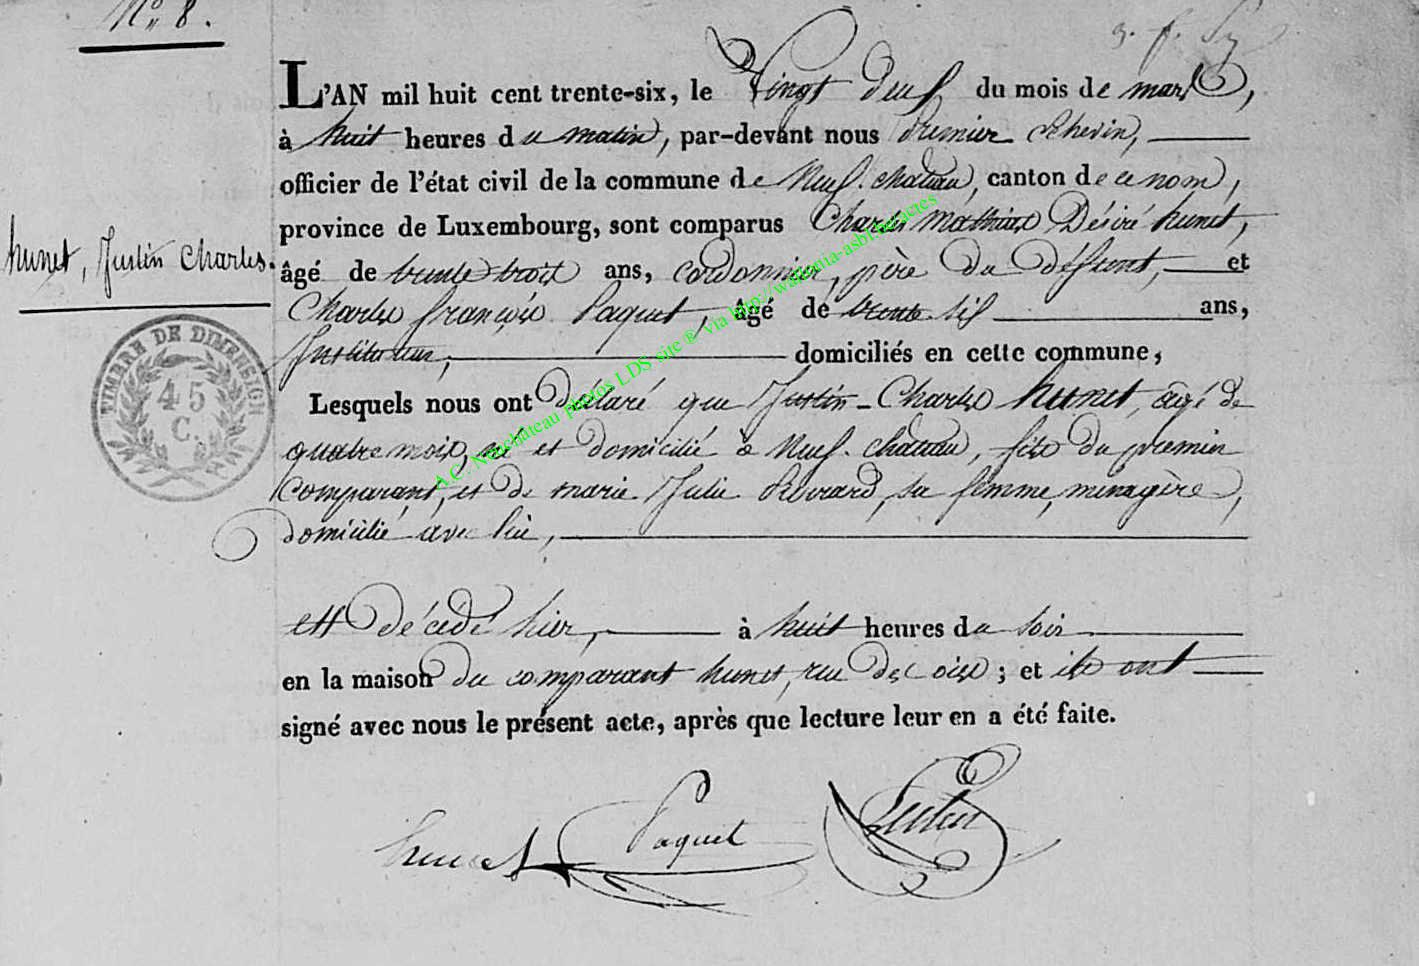 N° 8.
L'AN mil huit cent trente-six, le Vingt deux du mois de mars,
à huit heures du matin, par-devant nous Premier Echevin,
officier de l'état civil de la commune de Neuf-chateau, canton de ce nom,
province de Luxembourg, sont comparus Charles Mathias Désiré hunet,
hunet, Justin Charles.
âgé de trente trois ans, cordonnier, père du défunt, et
Charles françois Paquet, âgé de trente six ans,
Instituteur, domiciliés en cette commune,
TIMBRE DE DIMENSION
45
C.
Lesquels nous ont déclaré que Justin-Charles hunet, âgé de
quatre mois, né et domicilié à Neuf-chateau, fils du premier
comparant, et de marie Julie sa femme, menagère,
domicilié avec lui,
est décédé hier, à huit heures du soir
en la maison du comparant hunet, rue des ; et ils ont
signé avec nous le présent acte, après que lecture leur en a été faite.
hunet Paquet
A.C. Neufchâteau photos LDS site ® via http://wallonia-asbl.be/actes